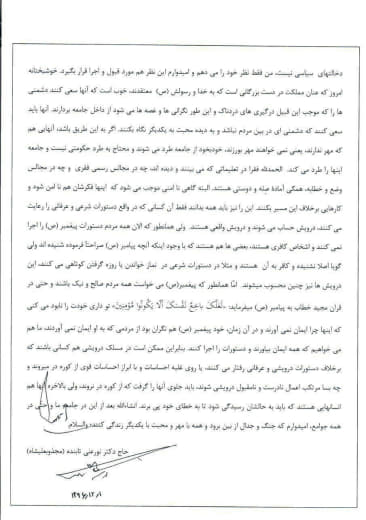 دخالتهای سیاسی نیست، من فقط نظر خود را می دهم و امیدوارم این نظر هم مورد قبول و اجرا قرار بگیرد. خوشبختانه
امروز که عنان مملکت در دست بزرگانی است که به خدا و رسولش (ص) معتقدند، خوب است که آنها سعی کنند دشمنی
ها را که موجب این قبیل درگیری های دردناک و این طور نگرانی ها و غصه ها می شود از داخل جامعه بردارند. آنها باید
سعی کنند که دشمنی ای در بین مردم نباشد و به دیده محبت به یکدیگر نگاه بکنند. اگر به این طریق باشد، آنهایی هم
که مهر ندارند، یعنی نمی خواهند مهر بورزند، خودبخود از جامعه طرد می شوند و محتاج به طرد حکومتی نیست و جامعه
اینها را طرد می کند. الحمدلله فقرا در تعلیماتی که می بینند و دیده اند، چه در مجالس رسمی فقری و چه در مجالس
وعظ و خطابه، همگی آماده صله و دوستی هستند. البته گاهی نا امنی موجب می شود که اینها فکرشان هم نا امن شود و
کارهایی برخلاف این مسیر بکنند. این را نیز باید همه بدانند فقط آن کسانی که در واقع دستورات شرعی و عرفانی را رعایت
می کنند، درویش حساب می شوند و درویش واقعی هستند. ولی همانطور که الان همه مردم دستورات پیغمبر (ص) را اجرا
نمی کنند و اشخاص کافری هستند، بعضی ها هم هستند که با وجود اینکه آنچه پیامبر (ص) صراحتاً فرموده شنیده اند ولی
گویا اصلا نشنیده و کافر به آن هستند و مثلا در دستورات شرعی در نماز خواندن یا روزه گرفتن کوتاهی می کنند، این
درویش ها نیز چنین محسوب میشوند. امّا همانطور که پیغمبر(ص) می خواست همه مردم صالح و نیک باشند و حتی در
قران مجید خطاب به پیامبر (ص) میفرماید: «لَعَلَّكَ بَاخِعٌ نَفْسَكَ أَلَّا يَكُونُوا مُؤْمِنِينَ» تو داری خودت را نابود می کنی
که اینها چرا ایمان نمی آورند و در آن زمان، خود پیغمبر (ص) هم نگران بود از مردمی که به او ایمان نمی آوردند، ما هم
می خواهیم که همه ایمان بیاورند و دستورات را اجرا کنند. بنابراین ممکن است در مسلک درویشی هم کسانی باشند که
برخلاف دستورات درویشی و عرفانی رفتار می کنند، یا روی غلبه احساسات و با ابراز احساسات قوی از کوره در میروند و
چه بسا مرتکب اعمال نادرست و نامقبول درویشی شوند، باید جلوی آنها را گرفت که از کوره در نروند، ولی بالاخره آنها هم
انسانهایی هستند که باید به حالشان رسیدگی شود تا به خطای خود پی برند. انشاءالله بعد از این در جامعه ما و حتی در
همه جوامع، امیدوارم که جنگ و جدال از بین برود و همه با مهر و محبت با یکدیگر زندگی کنند. والسلام
حاج دکتر نورعلی تابنده (مجذوبعلیشاه)